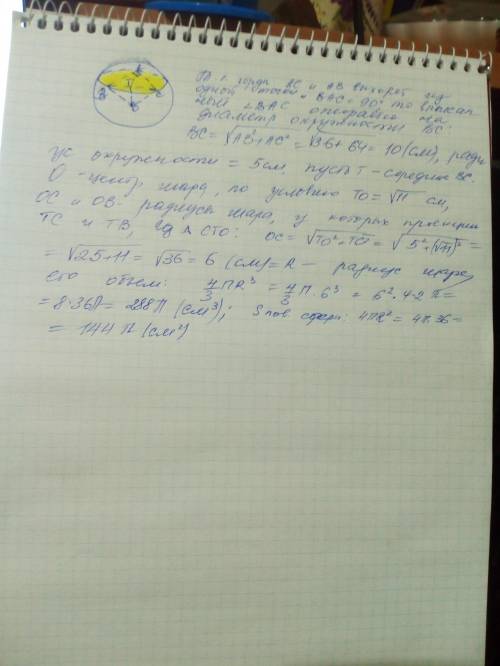 Т.к. хорды АС и АВ выходят из
одной точки и ВАС = 90° то
∠ВАС опирается на
диаметр окружности ВС.
BC = √AB²+AC² = √36+64 = 10(см),
окружности = 5см, пусть T-середина BC.
О-центр шара, по условию TO = √11 см,
OC и OB- радиусы шара, у которых проекции
TC и TB, ΔCTO: OC = √TO²+TC² = √5²+(√11)² =
= √25+11 = √36 = 6 (см) = R - радиус шара,
его объем: 4/3 ПR³ = 4/3 П·6³ = 6²·4·2 П =
= 8·36П = 288П (см³); S пов сферы: 4ПR² = 4П·36 =
= 144 П (см²)